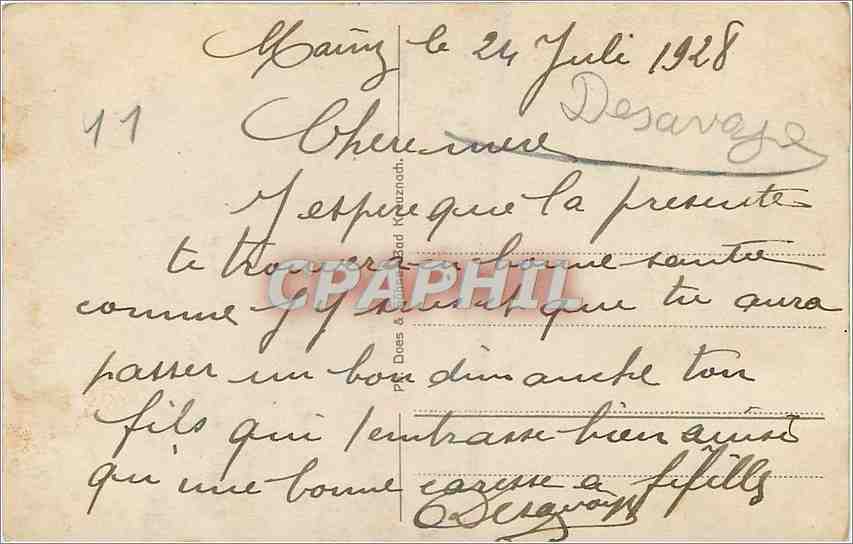 Mainz le 24 Juli 1928
Desavoye
11
Chere mere
J espere que la presente
te trouvera en bonne santee
comme J'y suis et que tu aura
passer un bon dimanche ton
fils qui t'embrasse bien ainsi
qu'une bonne caresse a fifille
Desavoye
Does & Bad Kreuznach.
CPAPHIL